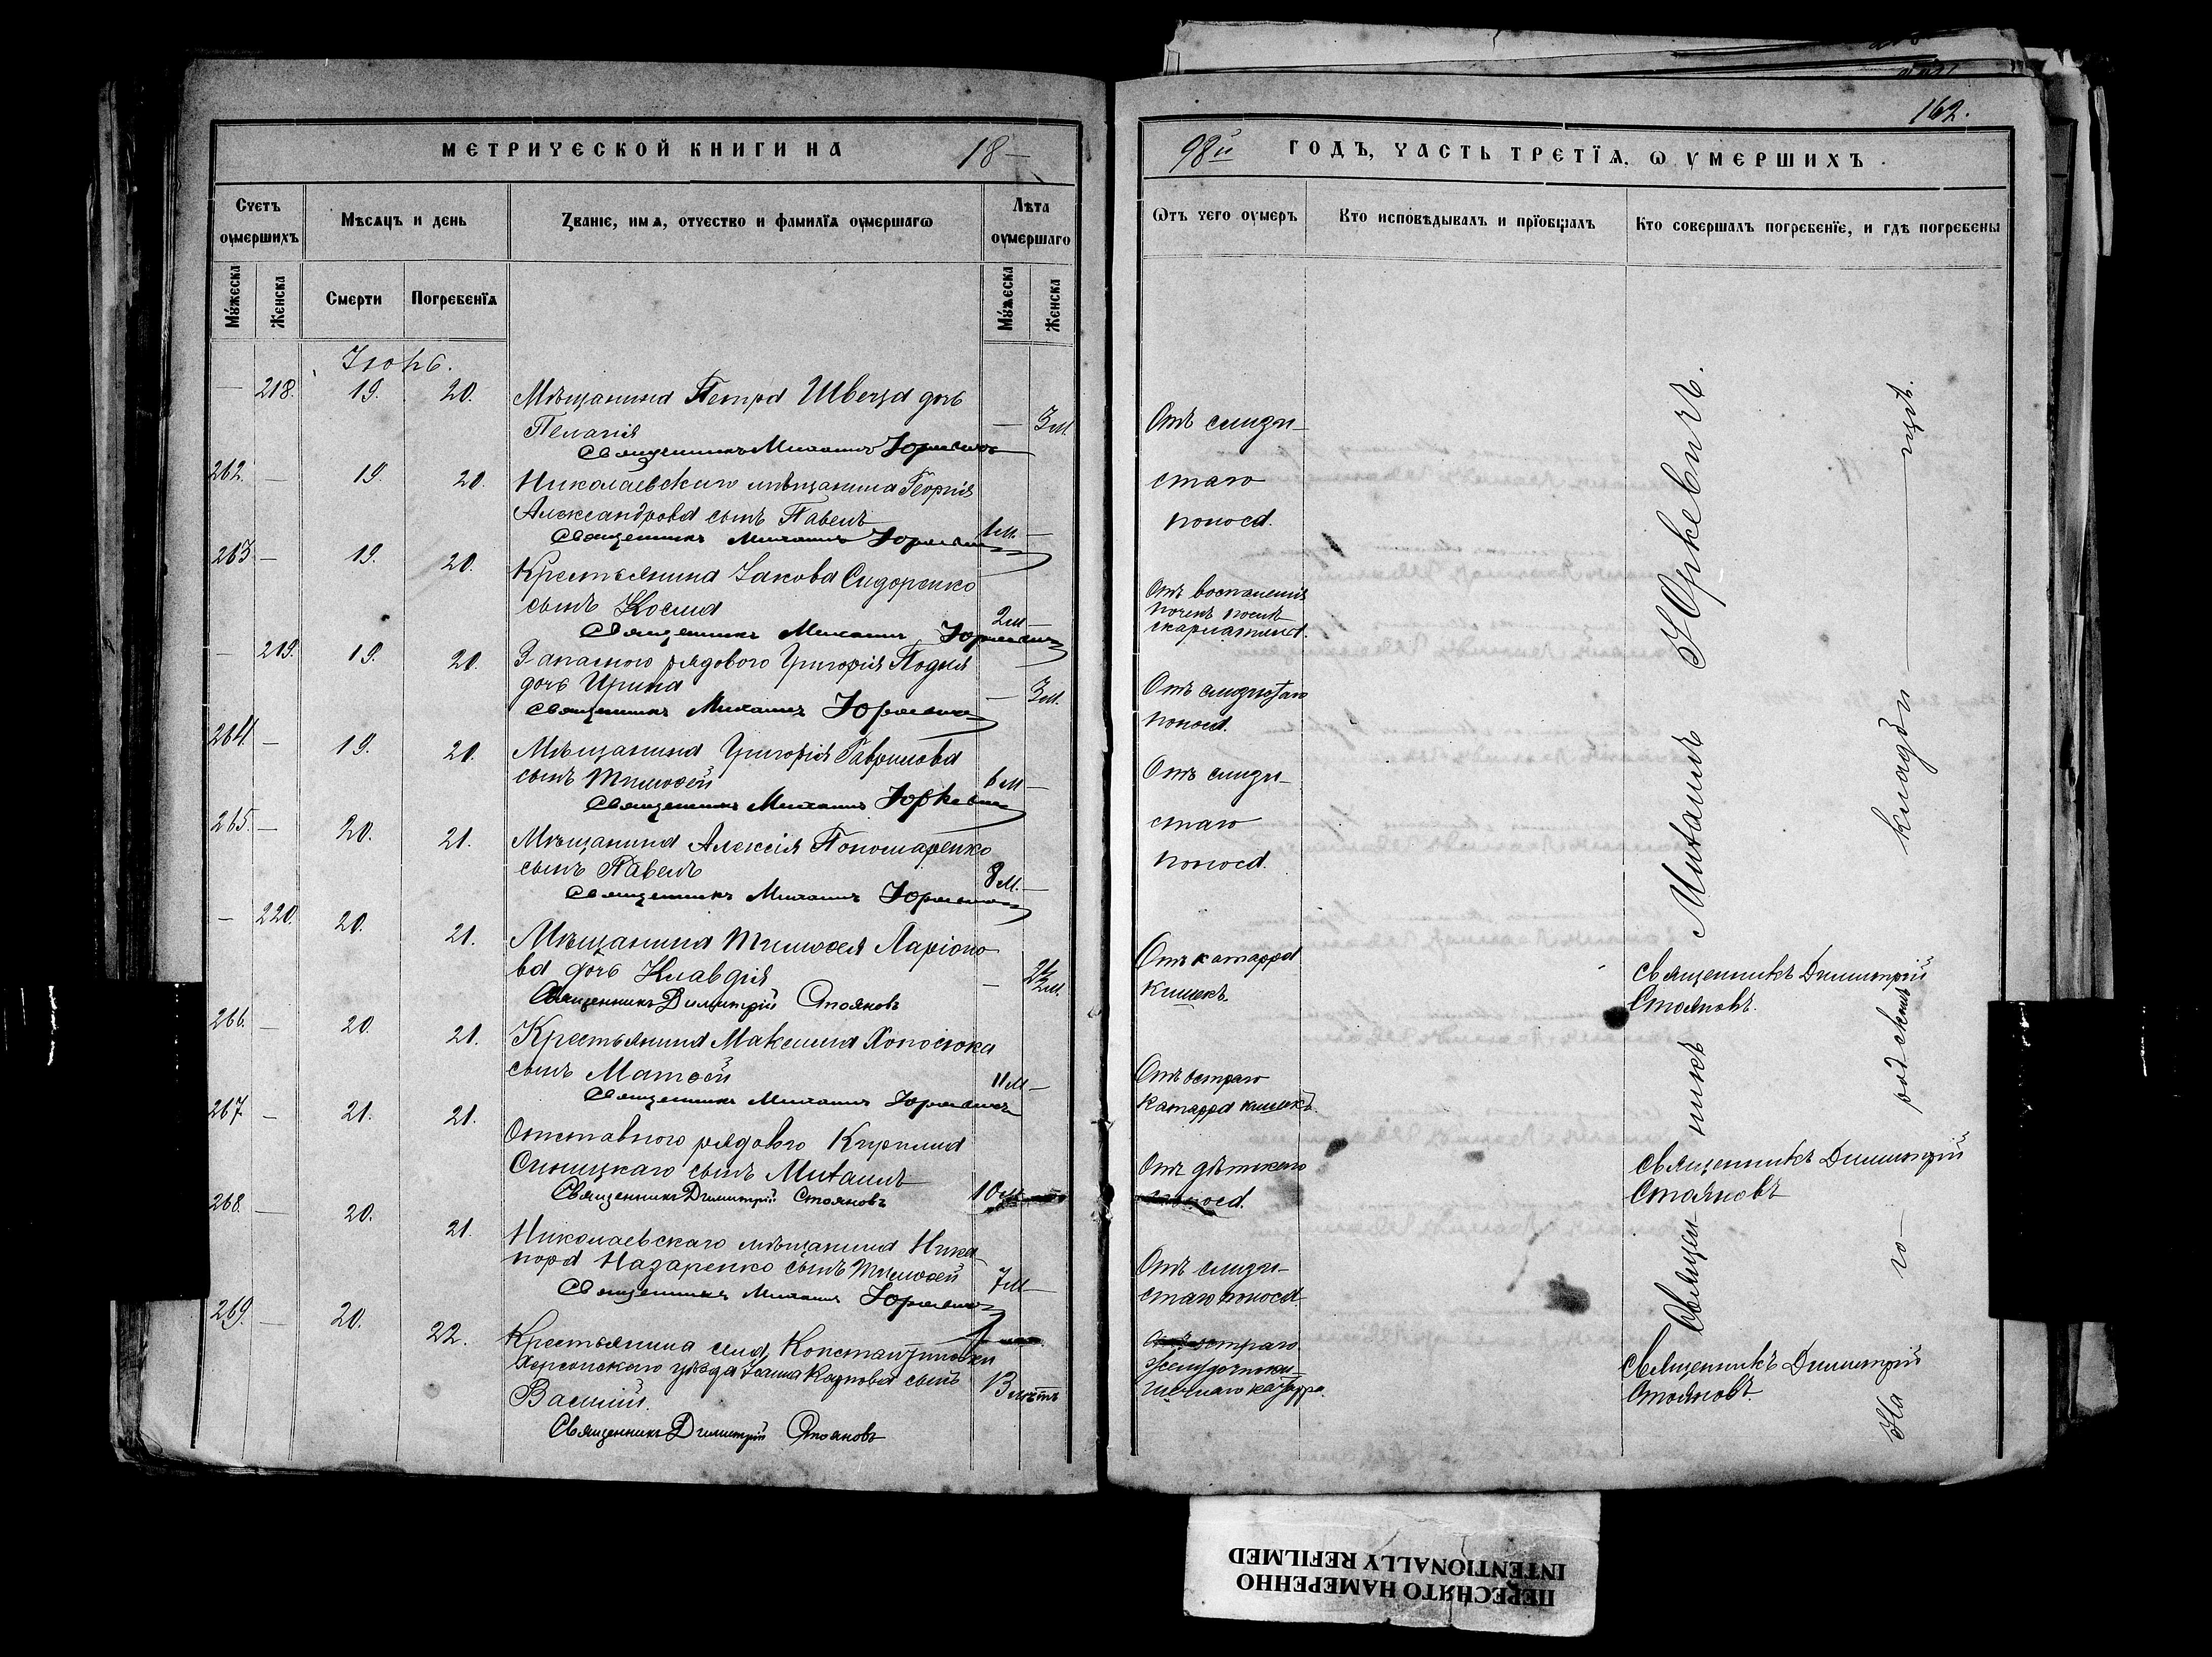 МЕТРИЧЕСКОЙ КНИГИ НА 18—
Счетъ оумершихъ
Мѣсяцъ и день
Званіе, имя, отчество и фамилїя оумершагѡ
Лѣта оумершаго
Мужеска
Женска
Смерти
Погребенїя
Мужеска
Женска
Іюнь.
— 218. 19. 20. Мѣщанина Петра Швеца дочь — 3 м.
Пелагія
Священникъ Михаилъ Юркевичъ
262. — 19. 20. Николаевскаго мѣщанина Георгія
Александрова сынъ Павелъ 1 м. —
Священникъ Михаилъ Юркевичъ
263 — 19. 20. Крестьянина Іакова Сидоренко
сынъ Косма 2 м —
Священникъ Михаилъ Юркевичъ
— 219. 19. 20. Запасного рядового Григорія
дочь Ирина — 3 м.
Священникъ Михаилъ Юркевичъ
264. — 19. 20. Мѣщанина Григорія Гаврилова
сынъ Тимоѳей 6 м —
Священникъ Михаилъ Юркевичъ
265. — 20. 21. Мѣщанина Алексія Пономаренко
сынъ Павелъ 8 м. —
Священникъ Михаилъ Юркевичъ
— 220. 20. 21. Мѣщанина Тимоѳея Ларіоно
ва дочь Клавдія —
Священникъ Димитрій Стояновъ
266. — 20. 21. Крестьянина Максима
сынъ Матѳей 11 м —
Священникъ Михаилъ Юркевичъ
267 — 21. 21. Отставного рядового Кирилла
Синицкаго сынъ Михаилъ 10 м
Священникъ Димитрій Стояновъ
268. — 20. 21. Николаевскаго мѣщанина Ника
нора Назаренко сынъ Тимоѳей 7 м —
Священникъ Михаилъ Юркевичъ
269. — 20. 22. Крестьянина села Константиновки
Херсонскаго уѣзда сынъ 13 лѣтъ
Василій.
Священникъ Димитрій Стояновъ
162.
98й ГОДЪ, ЧАСТЬ ТРЕТЇЯ, Ѡ УМЕРШИХЪ.
Ѿтъ чего оумеръ
Кто исповѣдывалъ и прїобщалъ
Кто совершалъ погребенїе, и гдѣ погребены
Отъ слизи—
стаго
поноса.
Отъ воспаленія
почекъ послѣ
скарлатины.
Отъ слизистаго
поноса.
Отъ слизи—
стаго
поноса.
Отъ катарра
кишекъ.
Отъ остраго
катарра кишекъ.
Отъ дѣтскаго
поноса.
Отъ слизи—
стаго поноса
остраго
желудочноки
шечнаго катарра.
Священникъ Михаилъ Юркевичъ.
Священникъ Димитрій
Стояновъ.
Священникъ Димитрій
Стояновъ
Священникъ Димитрій
Стояновъ.
На городскомъ кладби—щѣ.
ПЕРЕСНЯТО НАМЕРЕННО
INTENTIONALLY REFILMED